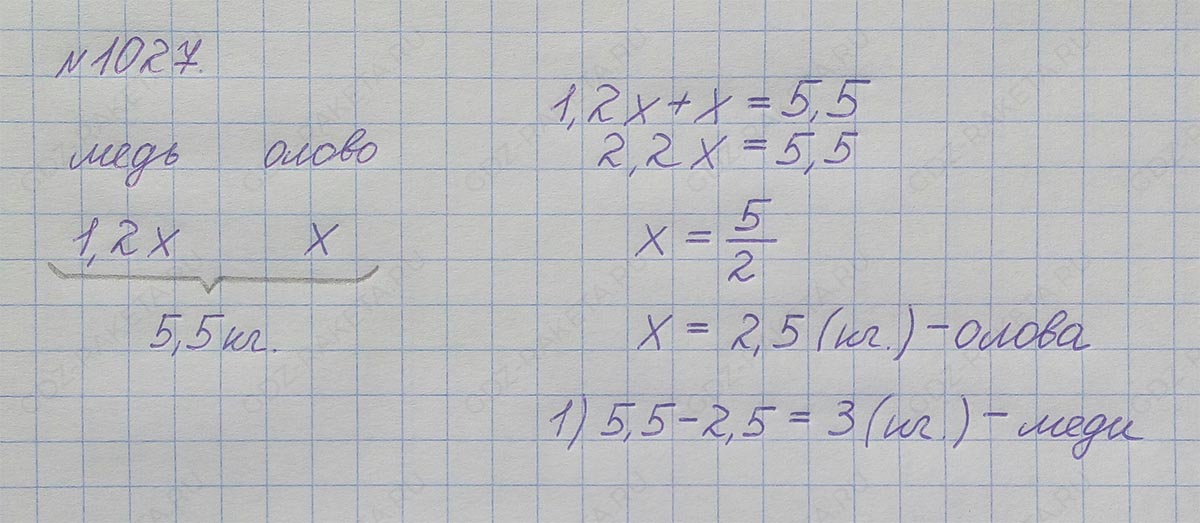 №1027.
медь олово
1,2x x
5,5кг.
1,2x+x=5,5
2,2x=5,5
x = 5/2
x = 2,5 (кг.) – олова
1) 5,5-2,5 = 3 (кг.) – меди
GDZ-RAKETA.RU